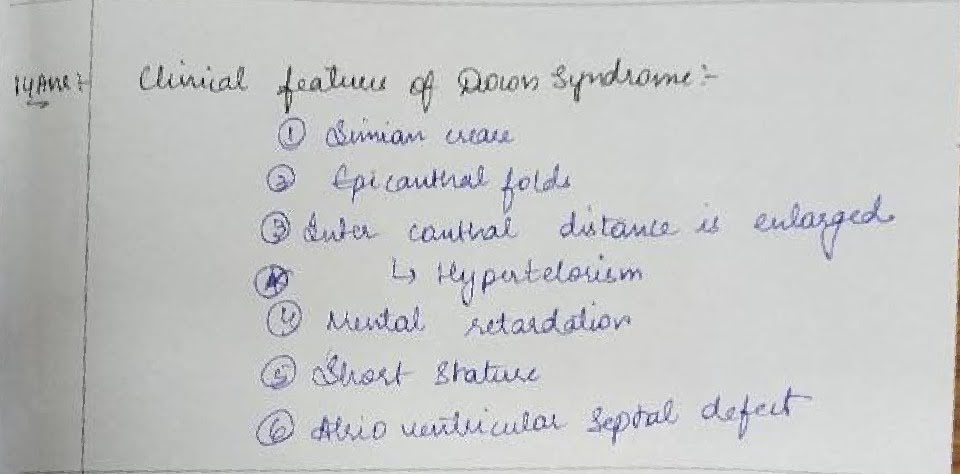 14 Ans:- Clinical features of Down Syndrome:-
① Simian crease
② Epicanthal folds
③ Inter canthal distance is enlarged
↳ Hypertelorism
④ Mental retardation
⑤ Short stature
⑥ Atrio ventricular septal defect